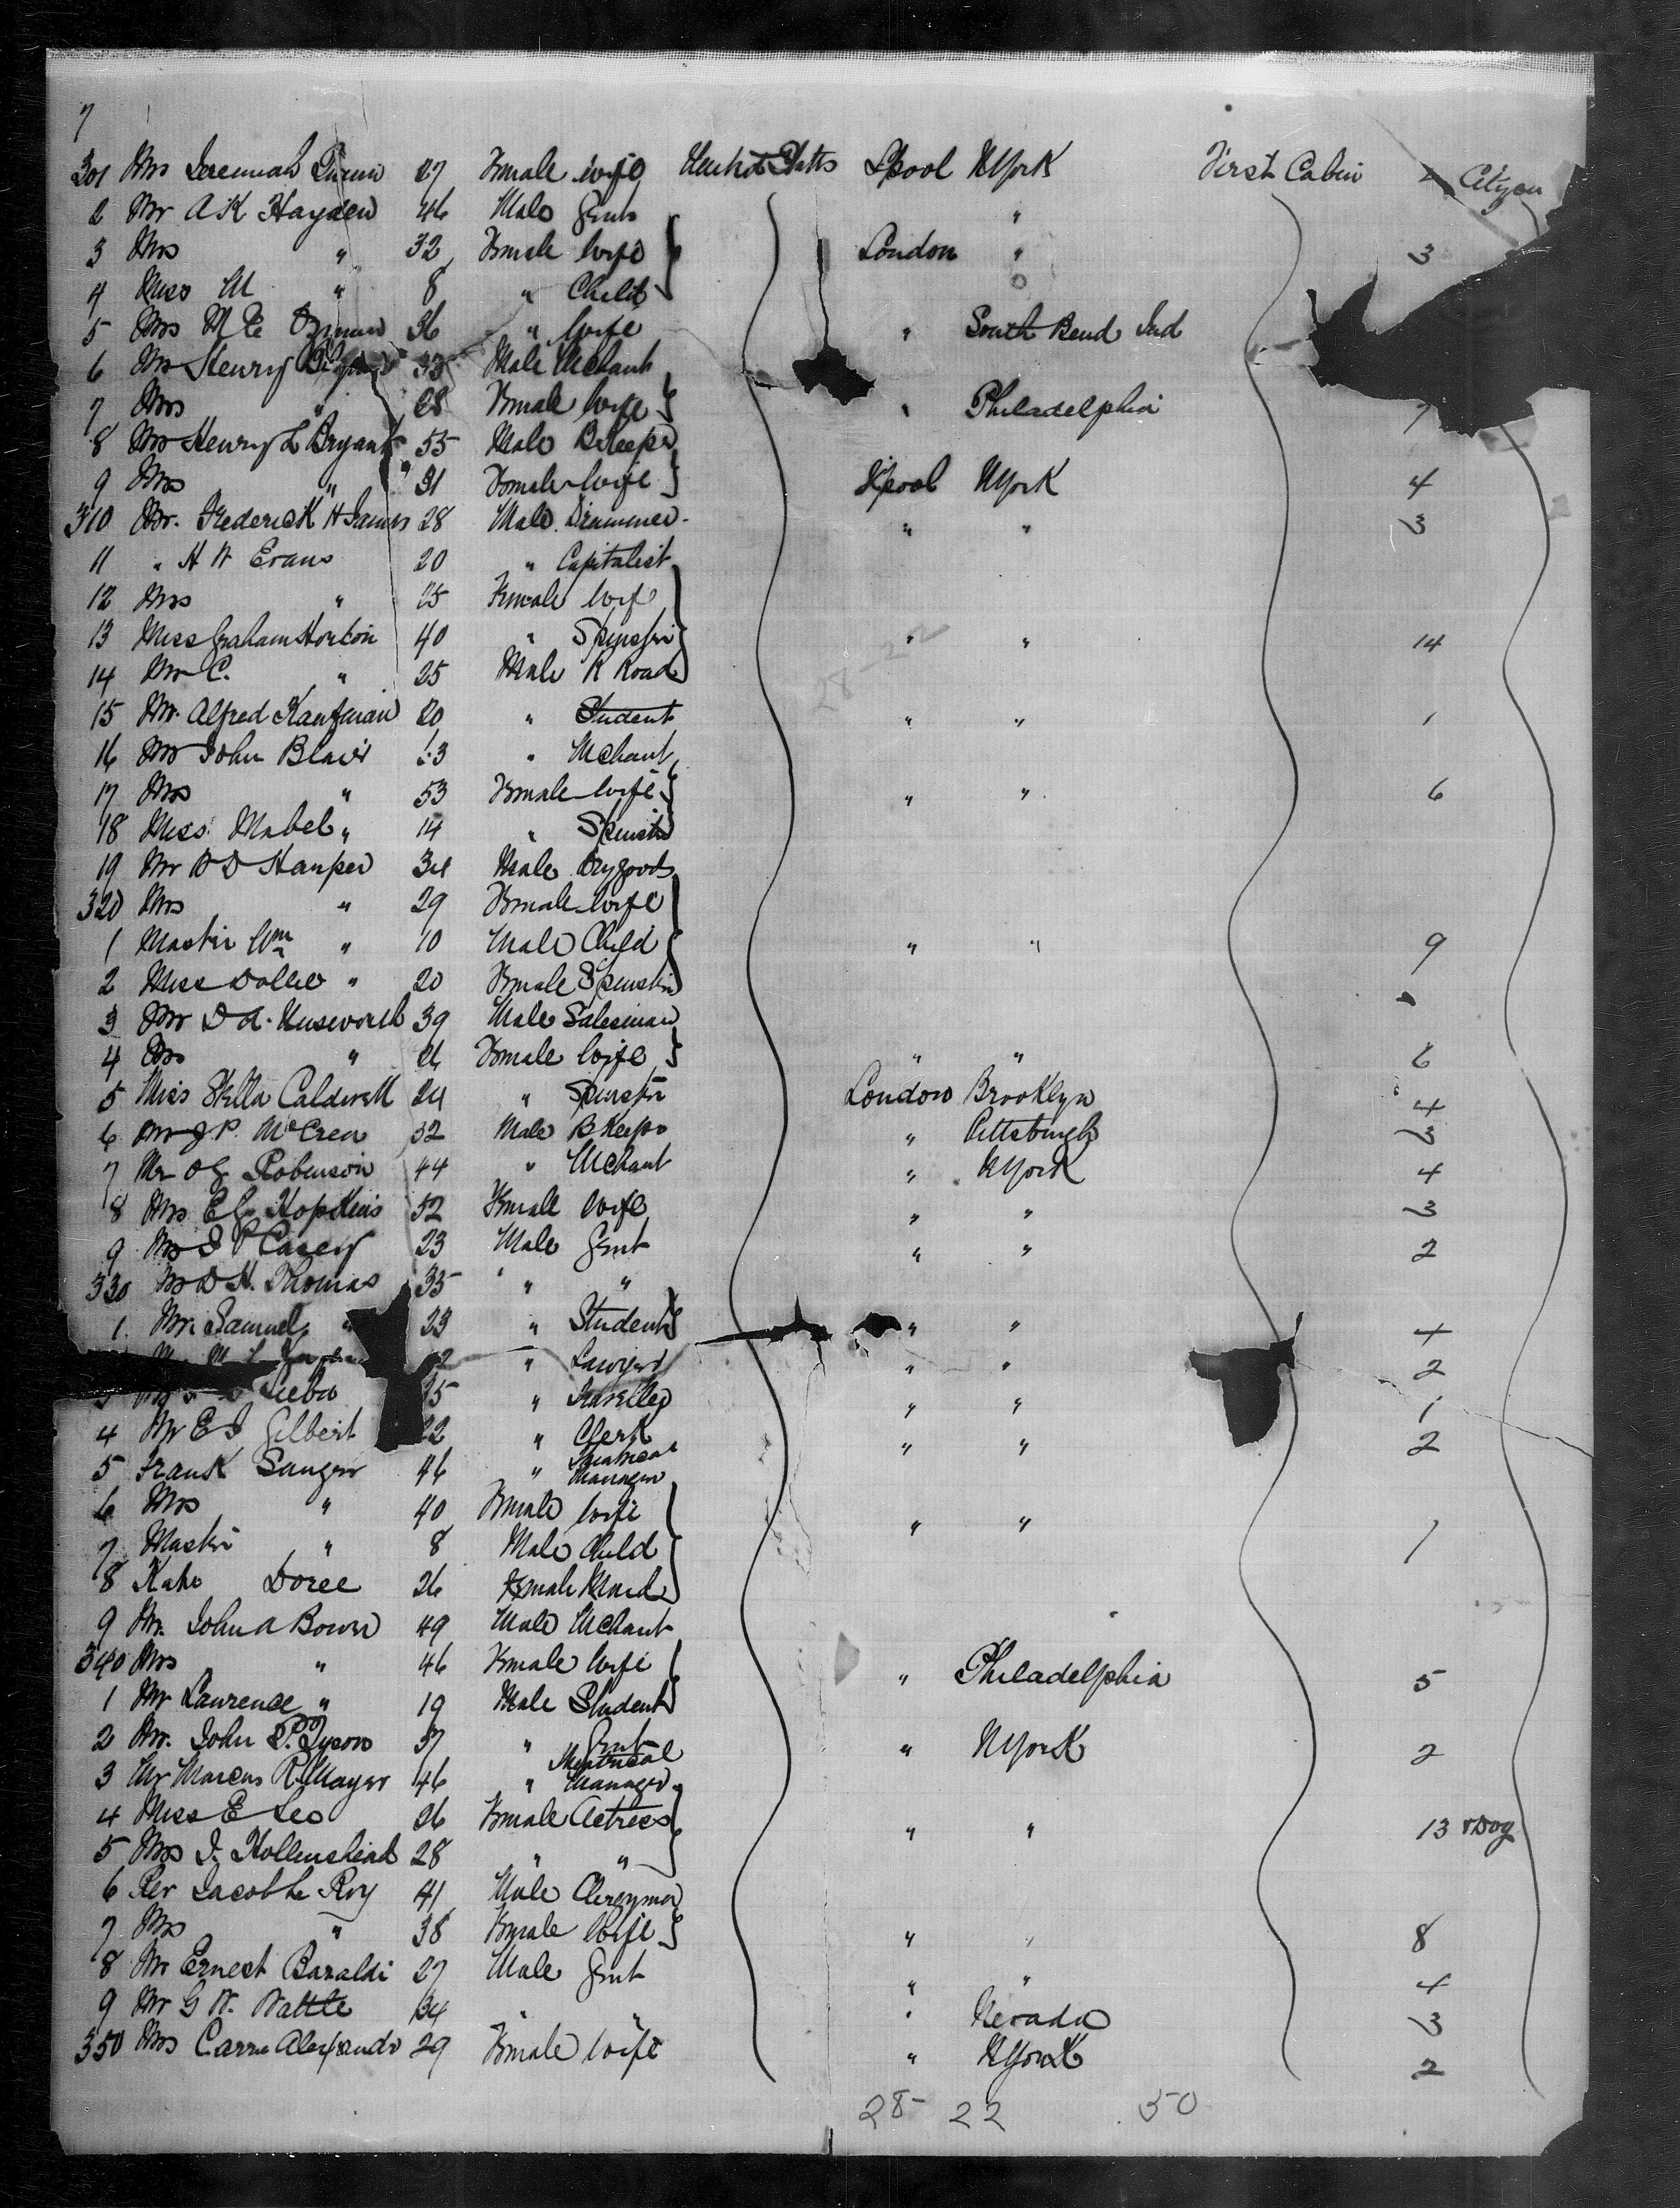 7
301 Mrs Jeremiah 27 Female Wife United States Lpool NYork First Cabin Citizen
2 Mr A K Hayden 46 Male Gent "
3 Mrs " 32 Female Wife London " 3
4 Miss M " 8 " Child
5 Mrs M E 36 " Wife " South Bend Ind
6 Mr Henry 33 Male Mchant
7 Mrs " 28 Female Wife " Philadelphia 7
8 Mr Henry L Bryant 55 Male BKeeper
9 Mrs " 31 Female Wife Lpool NYork 4
310 Mr. Frederick H James 28 Male Drummer " " 3
11 " H W Evans 20 " Capitalist
12 Mrs " 25 Female Wife
13 Miss Graham Horton 40 " Spinster " " 14
14 Mr C. " 25 Male R Road
15 Mr. Alfred Kaufman 20 " Student " " 1
16 Mr John Blair 53 " Mchant
17 Mrs " 53 Female Wife " " 6
18 Miss Mabel " 14 " Spinster
19 Mr W D Harper 34 Male Drygoods
320 Mrs " 29 Female Wife
1 Master Wm " 10 Male Child " " 9
2 Miss Dollie " 20 Female Spinster
3 Mr D A. Unsworth 39 Male Salesman
4 Mrs " 26 Female Wife " " 6
5 Miss Stella Caldwell 24 " Spinster London Brooklyn 4
6 Mr J P. McCrea 32 Male BKeeper " Pittsburgh 3
7 Mr O G Robinson 44 " Mchant " NYork 4
8 Mrs E G Hopkins 52 Female Wife " " 3
9 Mr J P Casey 23 Male Gent " " 2
330 Mr D H. Thomas 35 " "
1 Mr. Samuel " 23 " Student " " 4
" Lawyer " " 2
35 " Traveller " " 1
4 Mr E J Gilbert 22 " Clerk " " 2
5 Frank Sanger 46 " Theatrical Manager
6 Mrs " 40 Female Wife " " 1
7 Master " 8 Male Child
8 Kate Doree 26 Female Maid
9 Mr. John A Bower 49 Male Mchant
340 Mrs " 46 Female Wife " Philadelphia 5
1 Mr Lawrence " 19 Male Student
2 Mr. John P. Tyson 37 " Gent " NYork 2
3 Mr Marcus R Mayer 46 " Theatrical Manager
4 Miss E Leo 26 Female Actress " " 13 & Dog
5 Mrs J. Hollenshead 28 " "
6 Rev Jacob Le Roy 41 Male Clergyman
7 Mrs " 38 Female Wife " " 8
8 Mr Ernest Baraldi 27 Male Gent " " 4
9 Mr G W. Wattle 34 " " " Nevada 3
350 Mrs Carrie Alexander 29 Female Wife " NYork 2
28 22 50